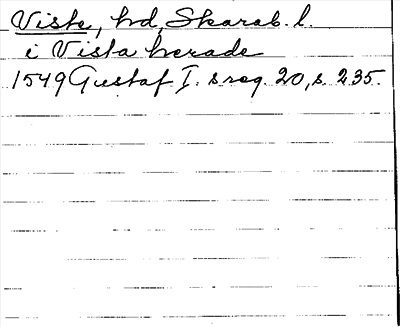 Viste, hd, Skarab. l.
i Vista herade
1549 Gustaf I. s reg. 20, s. 235.